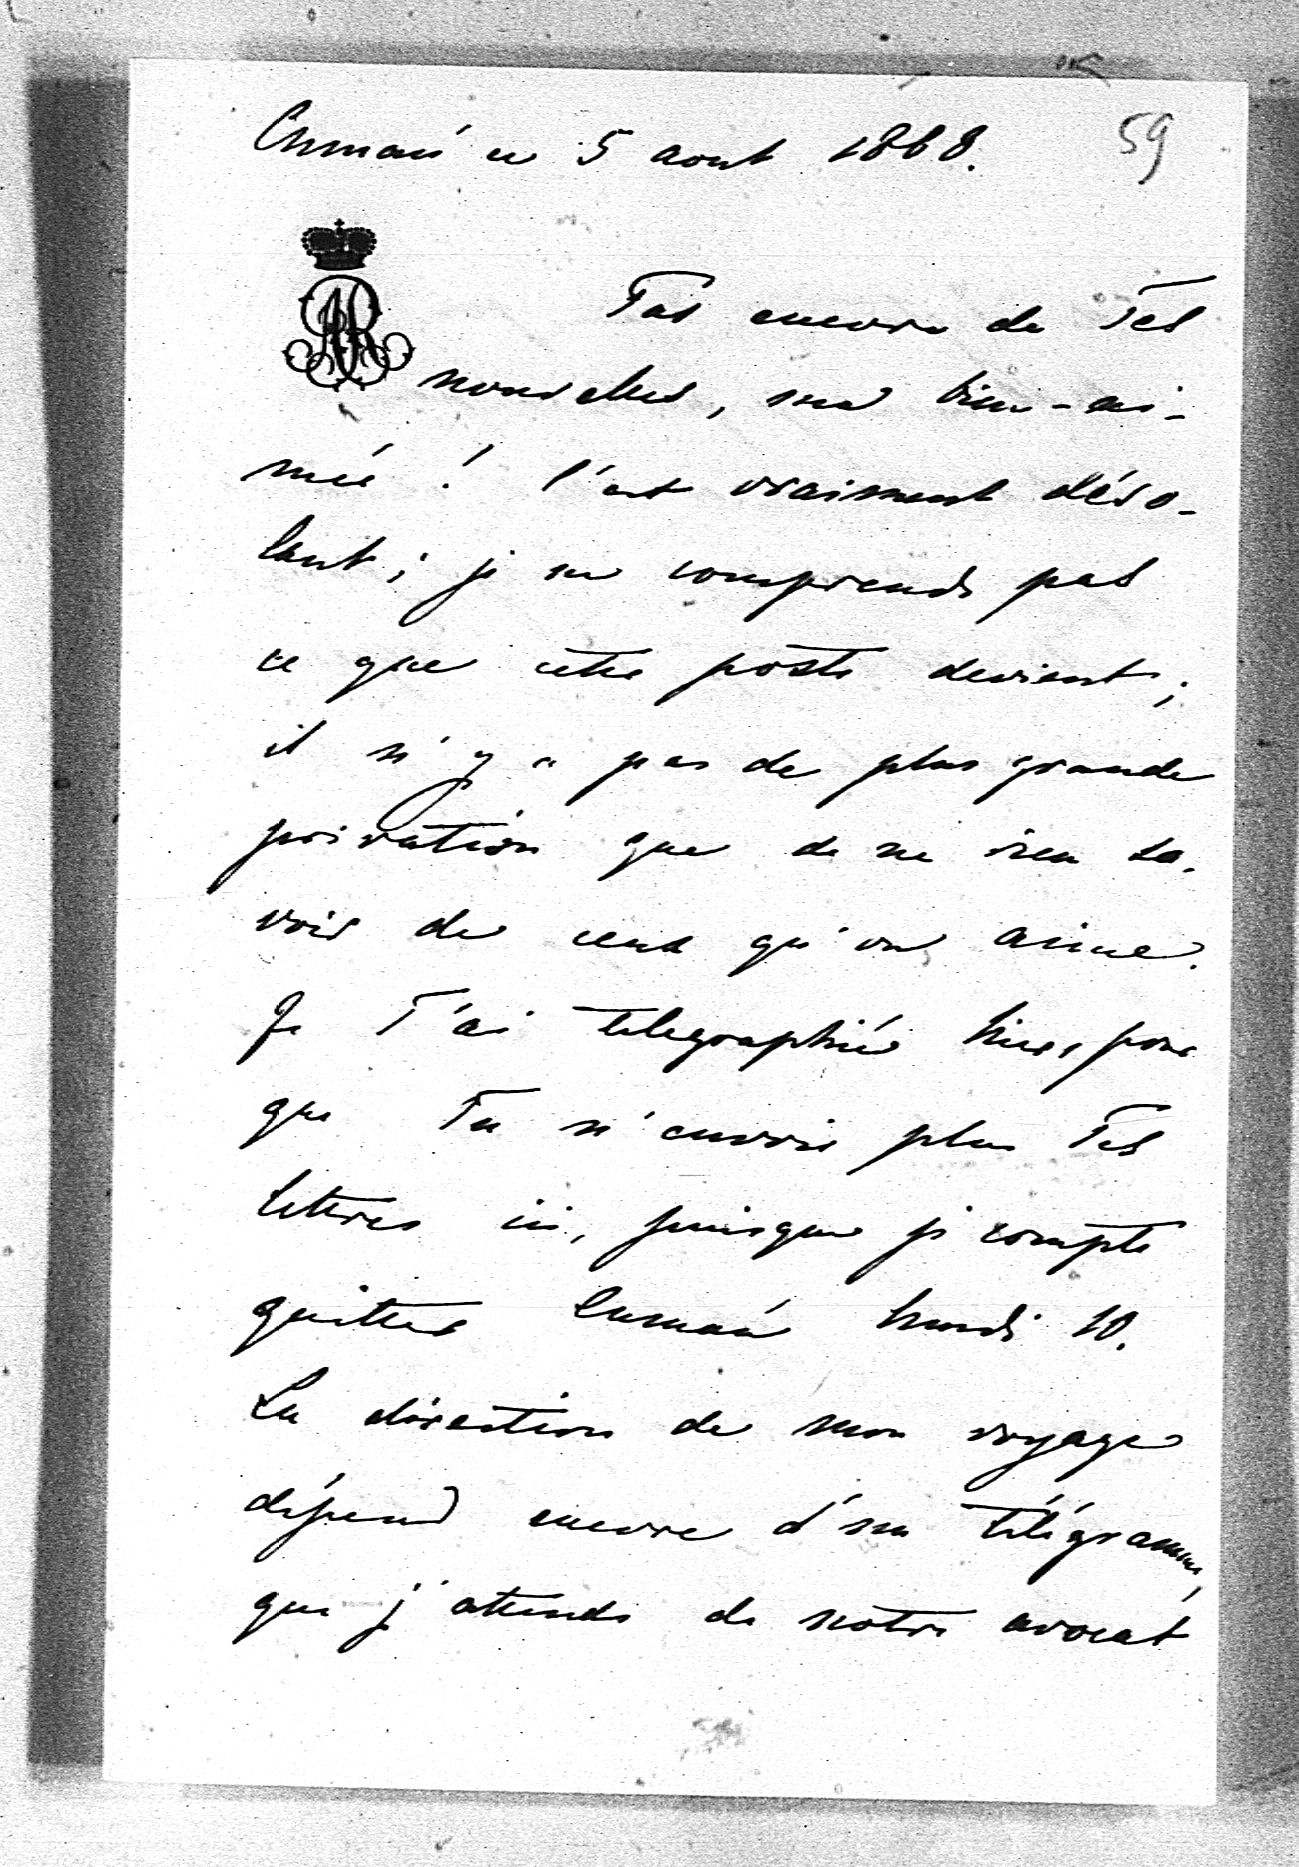 Cumań ce 5 aout 1868.
59
Pas encore de Tes
nouvelles, ma bien-ai-
mée ! C'est vraiment déso-
lant ; je ne comprends pas
ce que cette poste devient ;
il n'y a pas de plus grande
privation que de ne rien sa-
voir de ceux qu'on aime.
Je T'ai telegraphié hier, pour
que Tu n'envoie plus Tes
lettres ici, puisque je compte
quitter Cumań lundi 10.
La direction de mon voyage
dépend encore d'un télégramme,
que j'attends de notre avocat